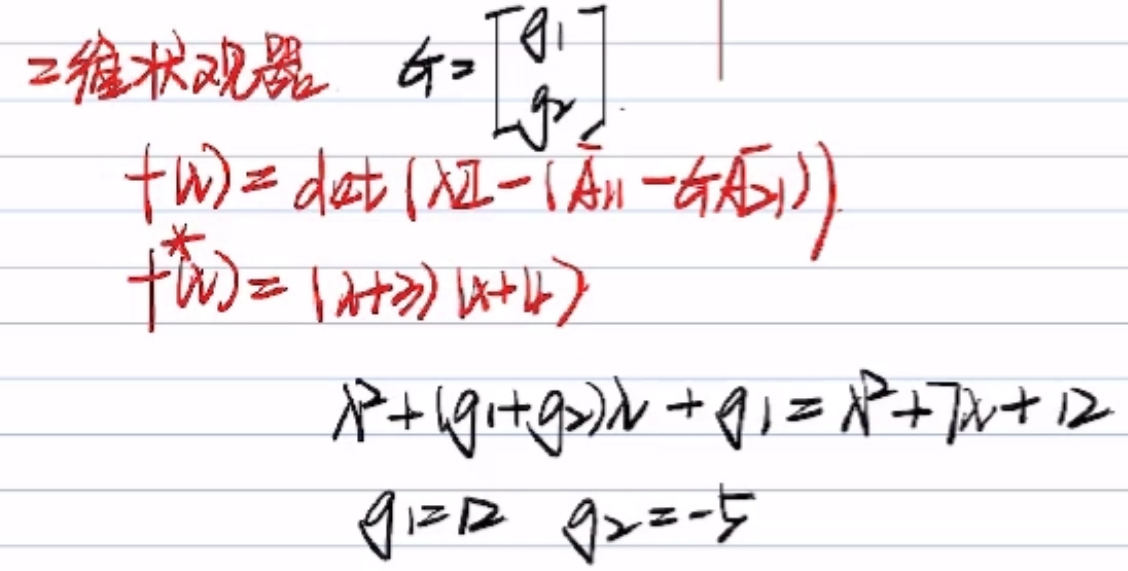 二维状观器 G=[g1 g2]
f(λ)=det(λI-(Ā11-GĀ21))
f*(λ)=(λ+3)(λ+4)
λ²+(g1+g2)λ+g1=λ²+7λ+12
g1=12 g2=-5